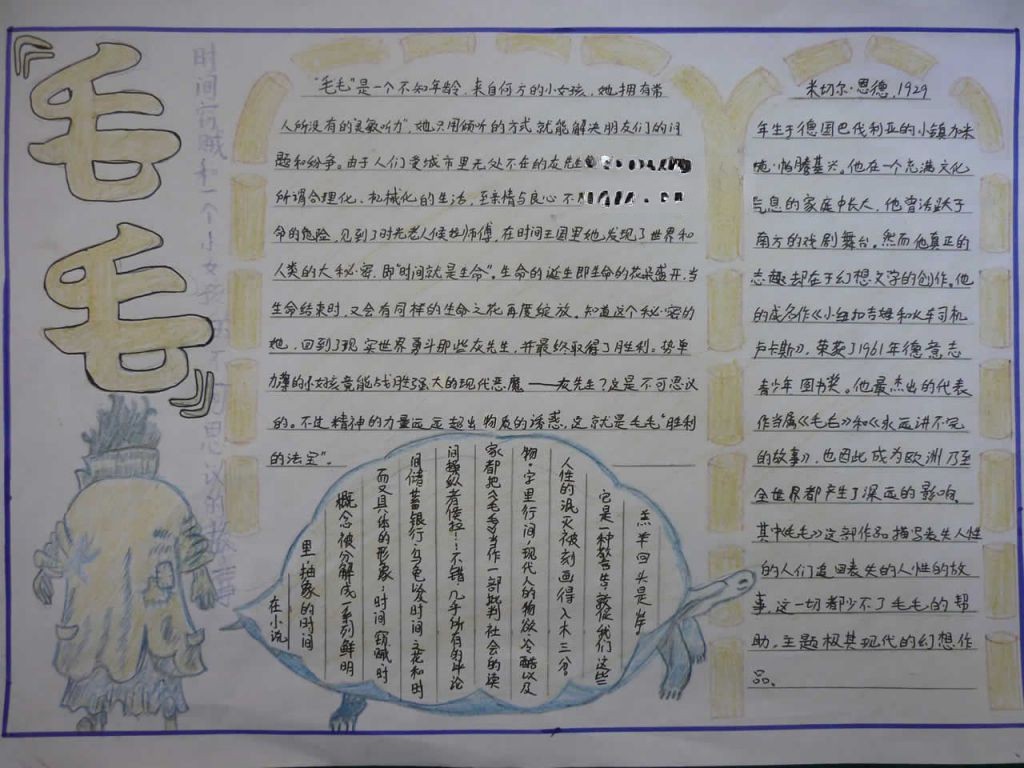 《毛毛》
时间窃贼和一个小女孩的不可思议的故事
"毛毛"是一个不知年龄,来自何方的小女孩,她拥有常
人所没有的"灵敏听力",她只用倾听的方式就能解决朋友们的问
题和纷争。由于人们受城市里无处不在的灰先生
所谓合理化、机械化的生活,至亲情与良心不
命的危险,见到了时光老人侯拉师傅,在时间王国里她发现了世界和
人类的大秘密,即"时间就是生命"。生命的诞生即生命的花朵盛开,当
生命结束时,又会有同样的生命之花再度绽放。知道这个秘密的
她,回到了现实世界勇斗那些灰先生,并最终取得了胜利。势单
力薄的小女孩竟能战胜强大的现代恶魔——灰先生?这是不可思议
的。不过精神的力量远远超出物质的诱惑,这就是毛毛"胜利
的法宝"。
在小说
里抽象的时间
概念被分解成一系列鲜明
而又具体的形象,时间窃贼,时
间储蓄银行,乌龟以及时间之花和时
间操纵者侯拉……不错,几乎所有的评论
家都把《毛毛》当作一部批判社会的读
物,字里行间,现代人的物欲冷酷以及
人性的泯灭被刻画得入木三分
它是一种警告,敦促我们这些
羔羊回头是岸
米切尔·恩德,1929
年生于德国巴伐利亚的小镇加米
施·帕滕基兴。他在一个充满文化
气息的家庭中长大,他曾活跃于
南方的戏剧舞台。然而他真正的
志趣却在于幻想文学的创作。他
的成名作《小纽扣吉姆和火车司机
卢卡斯》,荣获了1961年德意志
青少年图书奖。他最杰出的代表
作当属《毛毛》和《永远讲不完
的故事》,也因此成为欧洲乃至
全世界都产生了深远的影响,
其中《毛毛》这部作品描写丧失人性
的人们追回丧失的人性的故
事,这一切都少不了毛毛的帮
助,主题极其现代的幻想作
品。